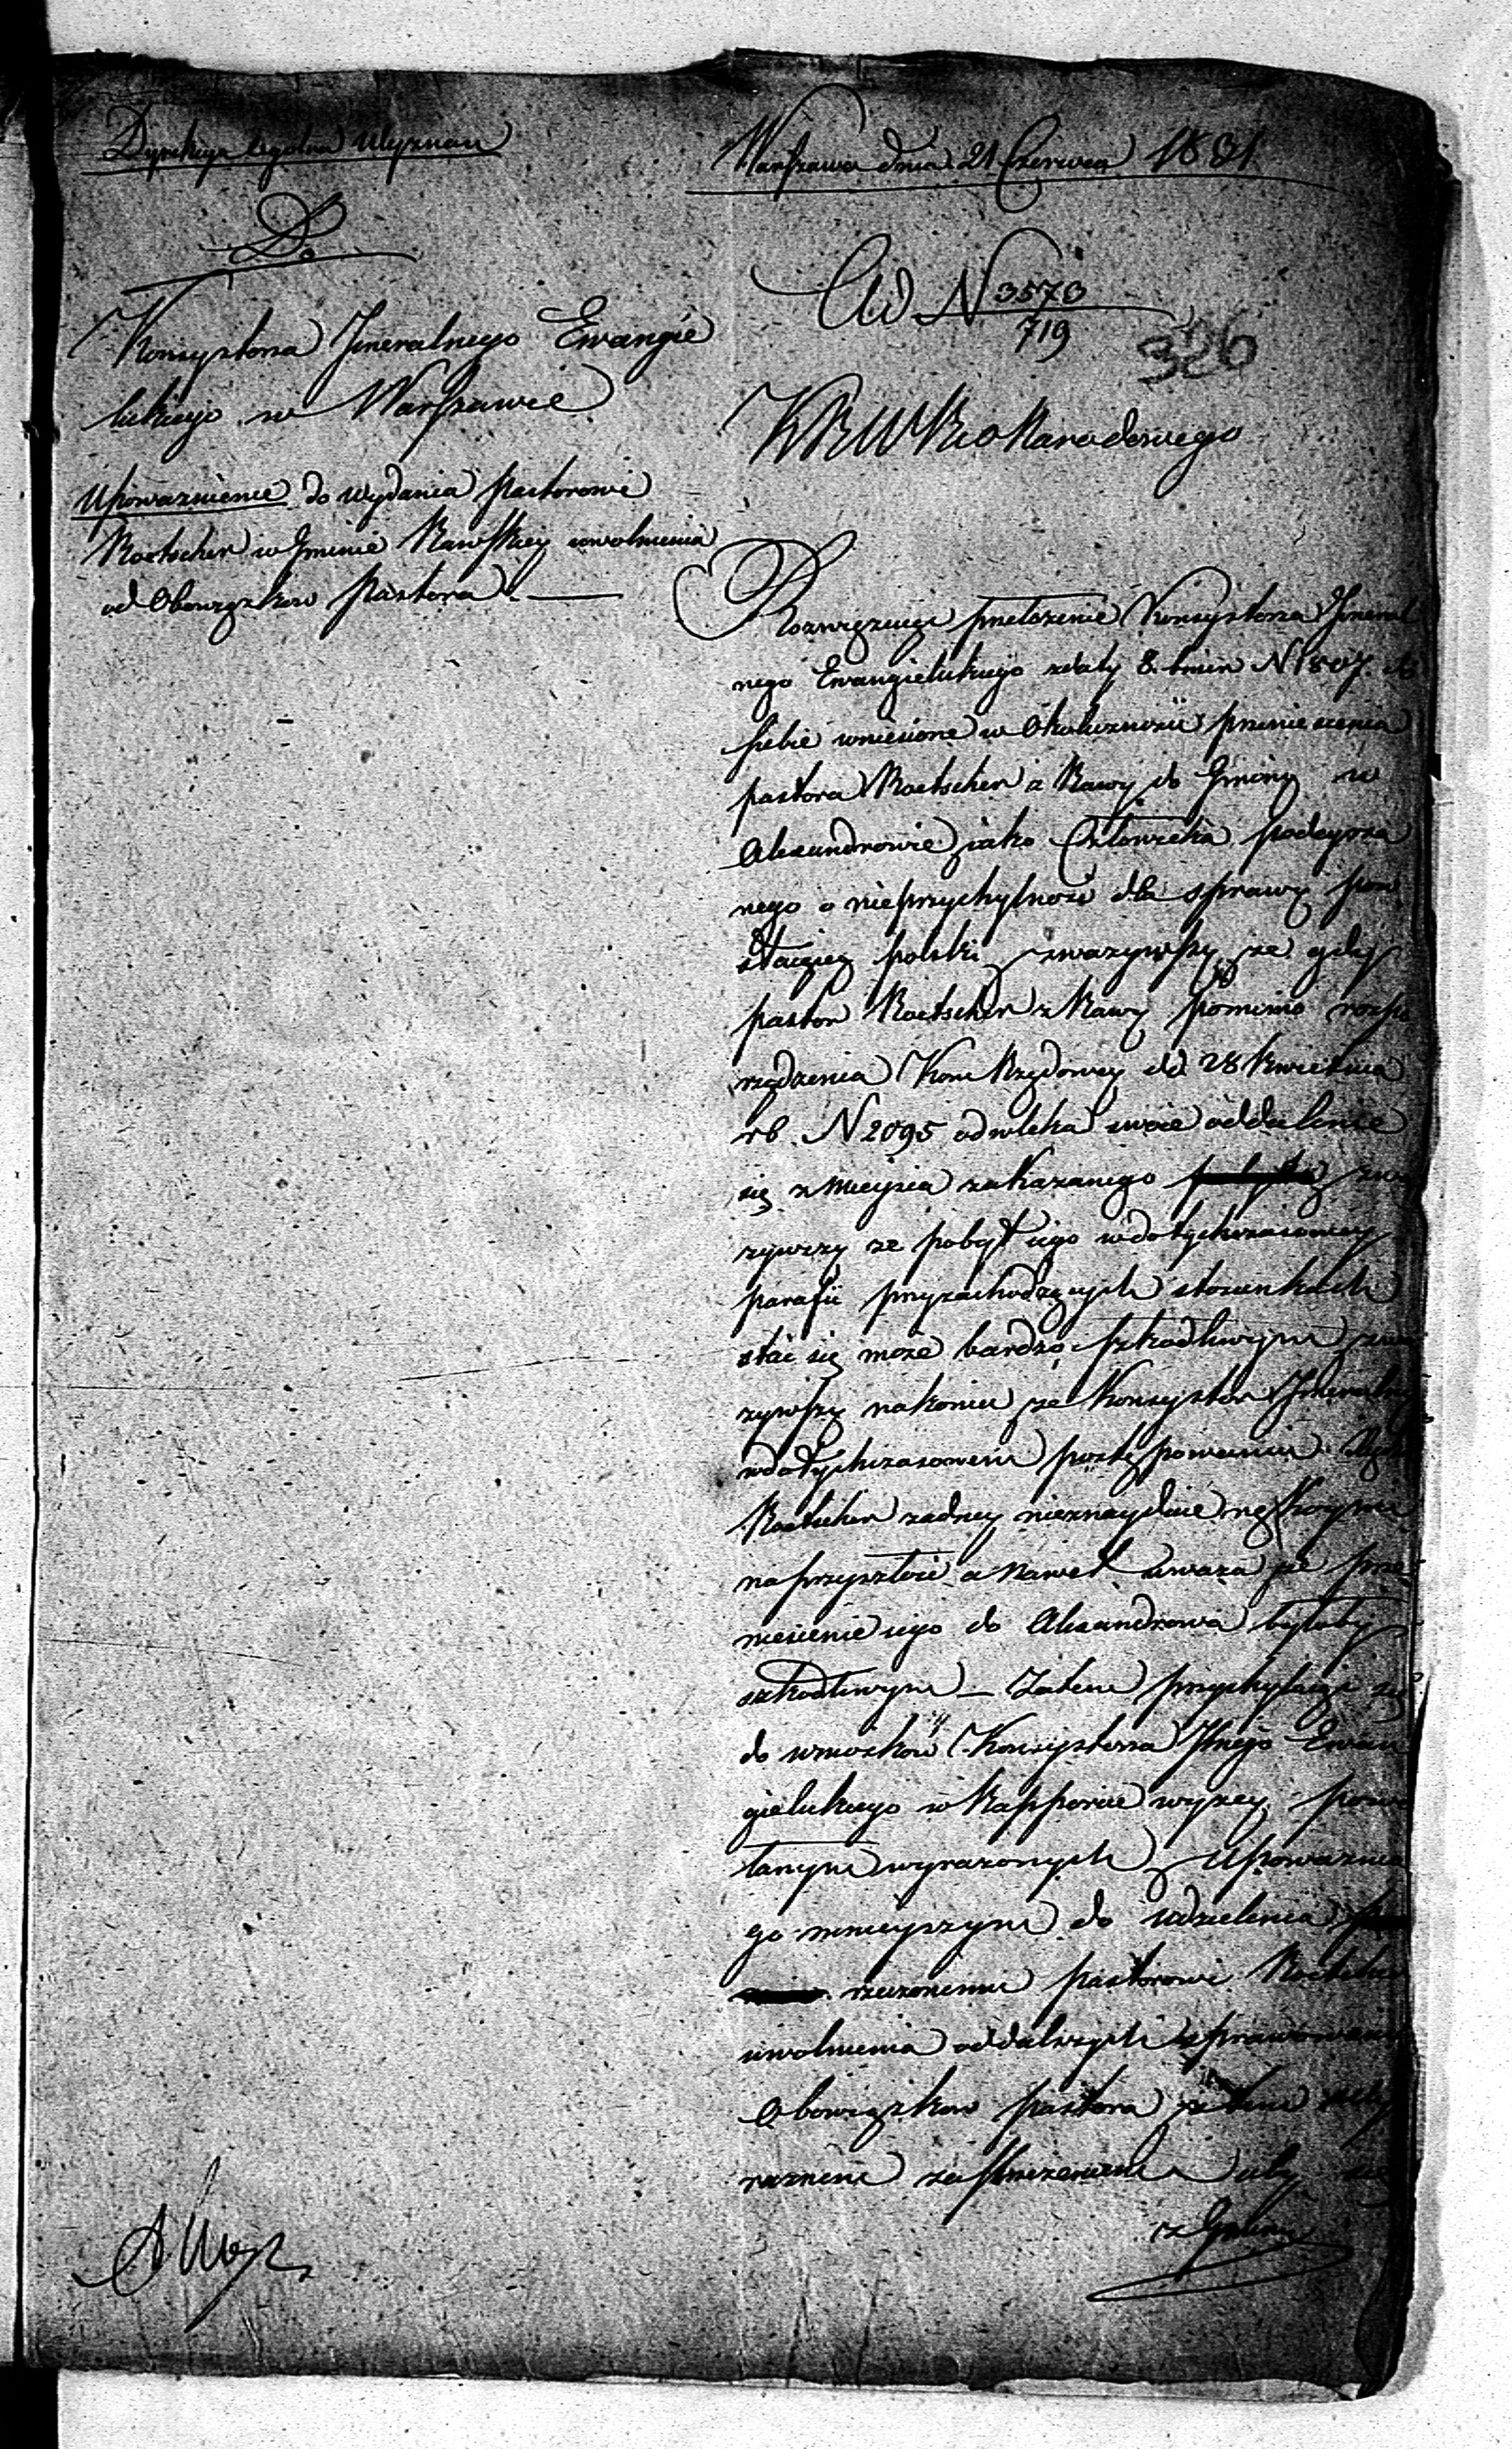 Dyrekcya Ogólna Wyznań
Do
Konsystorza Jeneralnego Ewangie
lickiego w Warszawie
Upoważnienie do wydania pastorowi
Roetscher w Gminie Rawskiey uwolnienia
od Obowiązków Pastora
Warszawa dnia 21 Czerwca 1831
Ad N 3573
719
326
KRWR i O Narodowego
Rozwiązuiąc przełożenie Konsystorza Jeneral
nego Ewangielickiego zdaty 8. bmca N 1807. do
siebie wniesione w okoliczności przeniesienia
pastora Roetscher z Rawy do Gminy w
Alexandrowie iako Człowieka podeyrza
nego o nieprzychylność dla sprawy pow
staiącey polski zważywszy że gdy
pastor Roetscher z Rawy pomimo rozpo
rządzenia Kom Rządowey dd 28 Kwietnia
rb. N 2095 odwleka swoie oddalenie
się z mieysca zakazanego zwa
żywszy że pobyt iego w dotychczasowey
parafii przy zachodzących stosunkach
stać się może bardzo szkodliwym zwa
żywszy nakoniec że Konsystorz Jeneralny
w dotychczasowem postępowaniu
Roetscher żadney nieznayduie rękoymi
na przyszłość a nawet uważa że prze
niesienie iego do Alexandrowa byłoby
szkodliwym – Zatem przychylaiąc się
do wniosków Konsystorza Jlnego Ewan
gielickiego w Rapporcie wyżey powo
łanym wyrażonych, upoważnia
go ninieyszym do udzielenia
rzeczonemu pastorowi Roetscher
uwolnienia od dalszych sprawowania
Obowiązków pastora z tem wy
raźnem zastrzeżeniem aby się